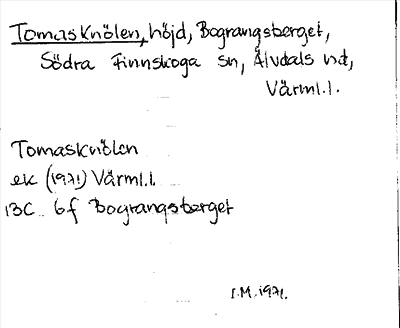 Tomasknölen, höjd, Bograngsberget,
Södra Finnskoga sn, Älvdals hd,
Värml.l.
Tomasknölen
ek (1971) Värml.l.
13C 6f Bograngsberget
I.M. 1971.